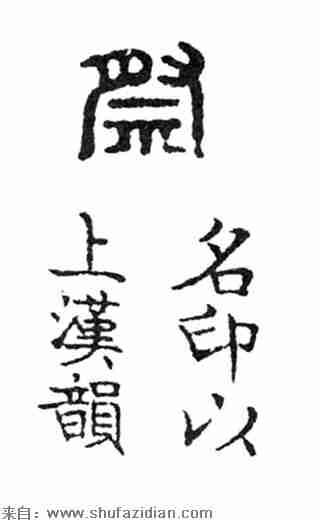 祭
名印以
上漢韻
来自：www.shufazidian.com